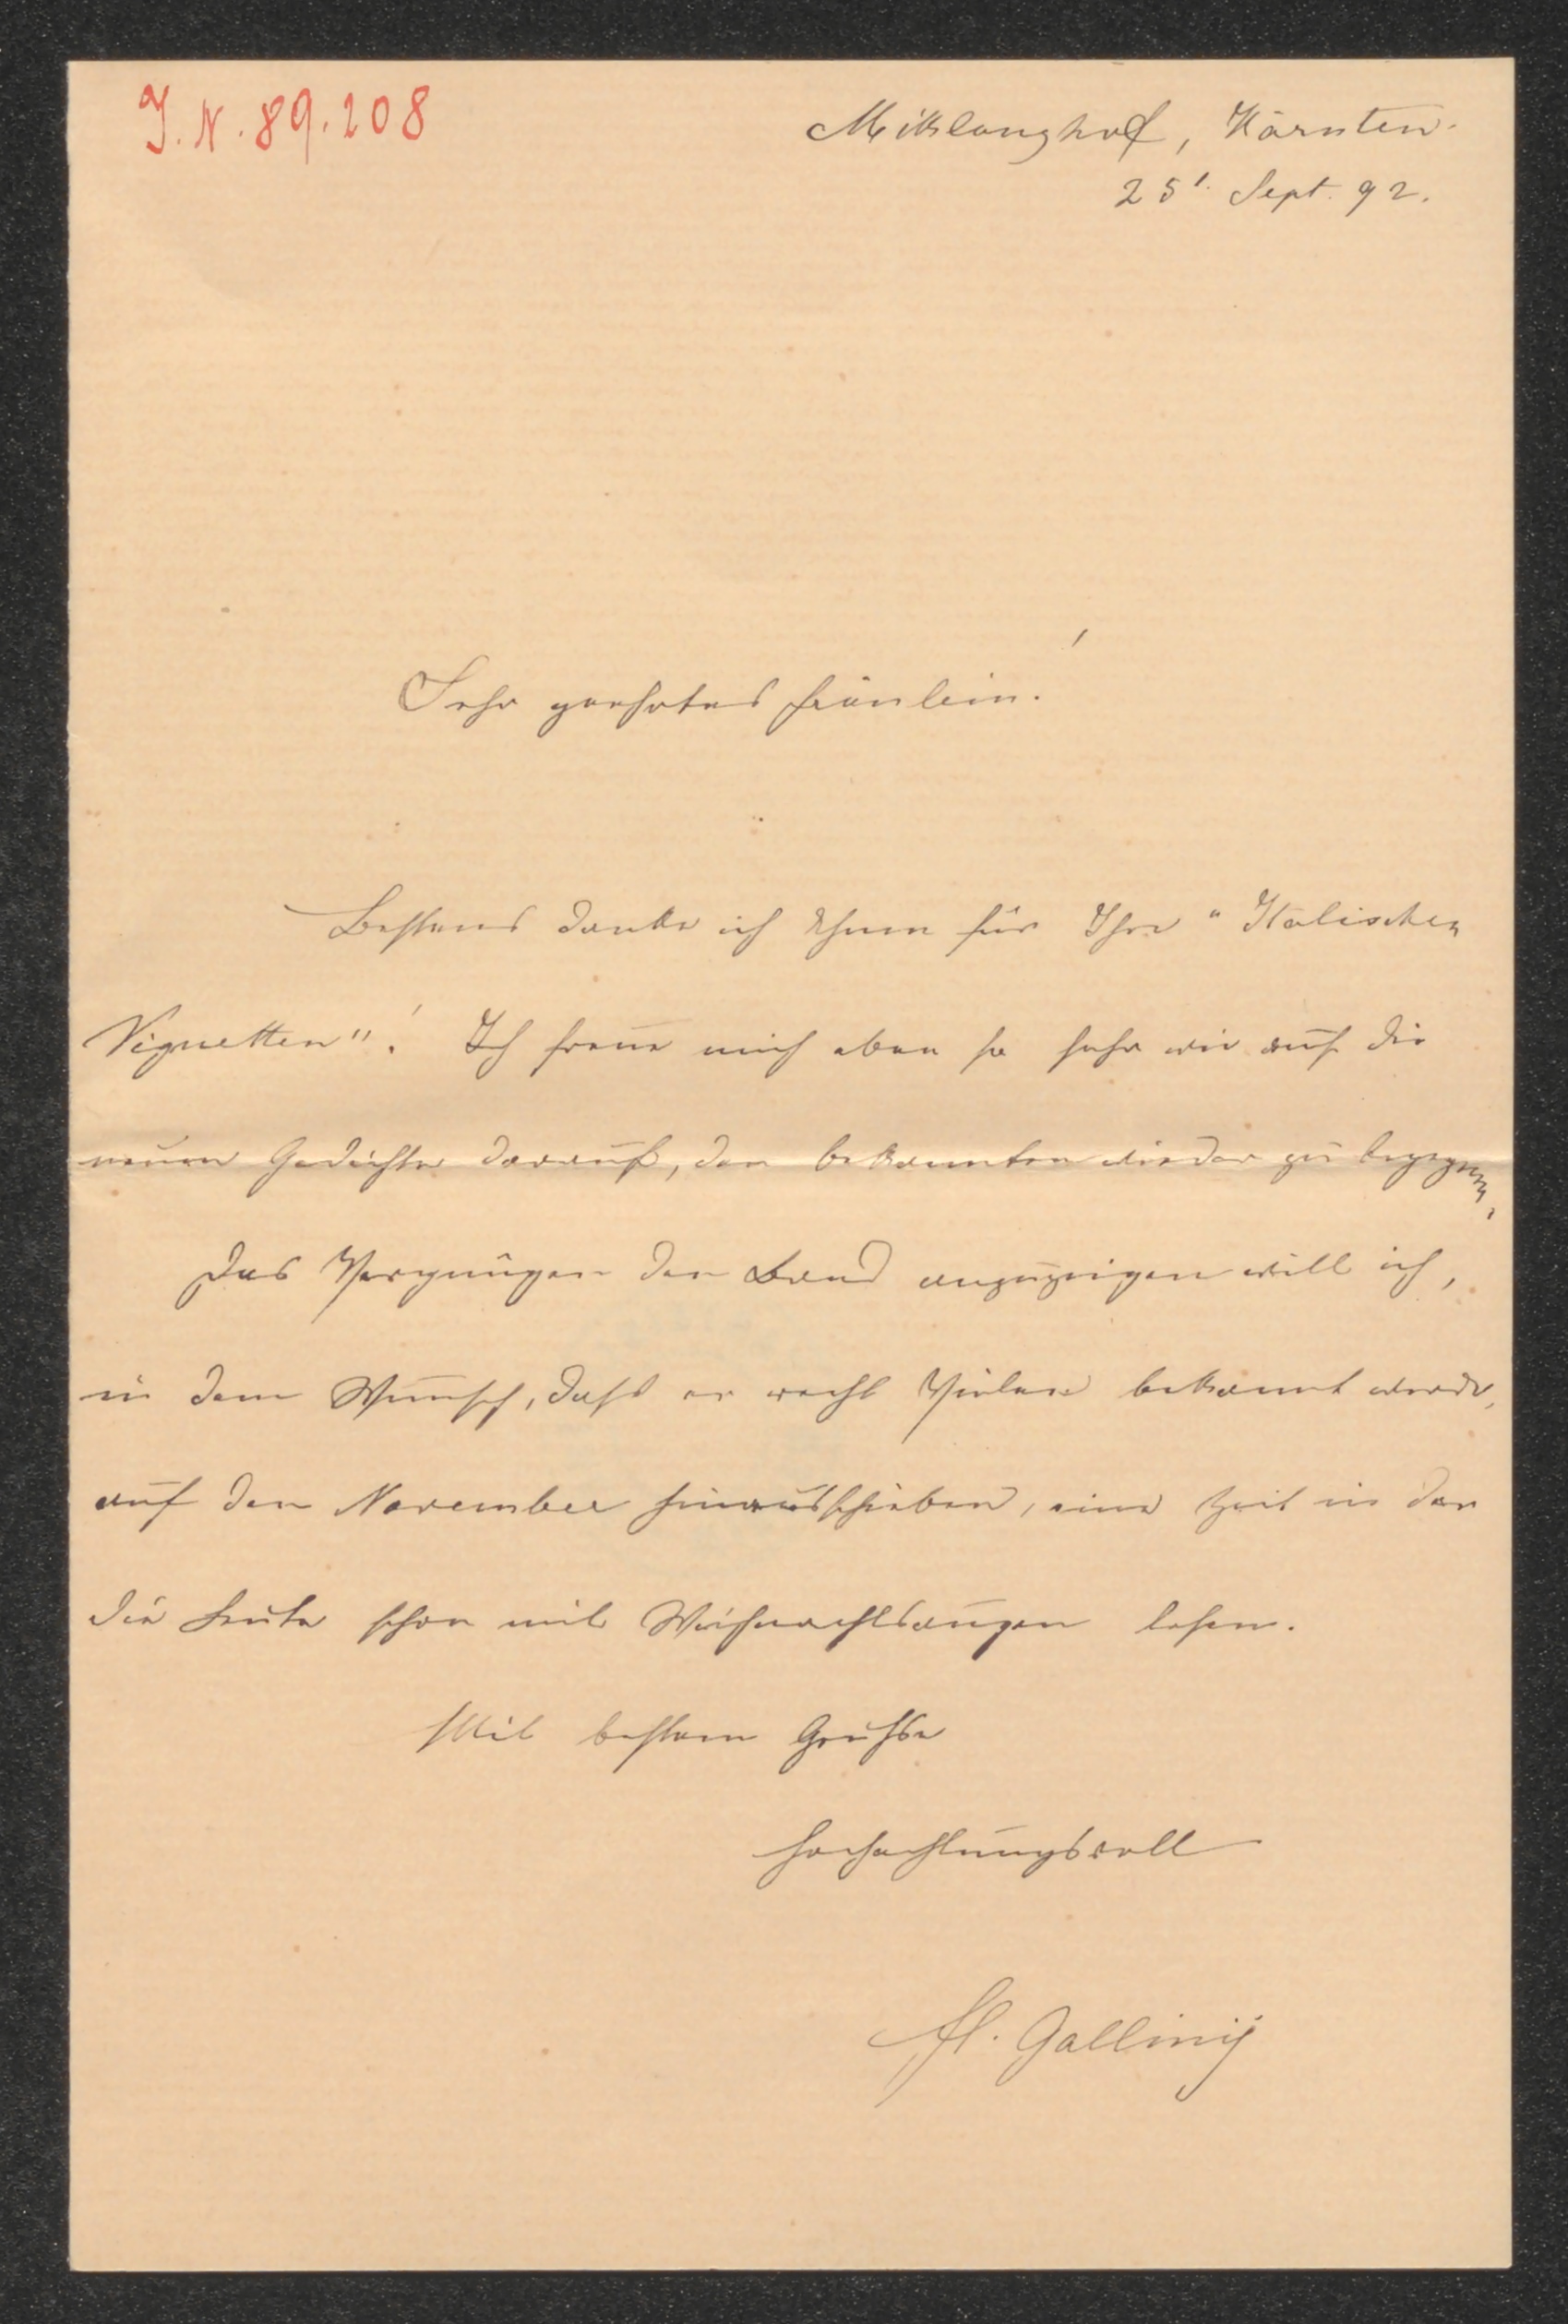 J. N. 89.208
Miklauzhof, Kärnten.
25. Sept. 92.
Sehr geehrtes Fräulein!
Bestens danke ich Ihnen für Ihre "Italischen
Vignetten"! Ich freue mich eben so sehr wie auf die
neuen Gedichte darauf, den bekannten wieder zu begegnen.
Das Vergnügen den Band anzuzeigen will ich,
in dem Wunsch, daß er recht Vielen bekannt werde,
auf den November hinausschieben, eine Zeit in der
die Leute schon mit Weihnachtsaugen lesen.
Mit bestem Gruße
hochachtungsvoll